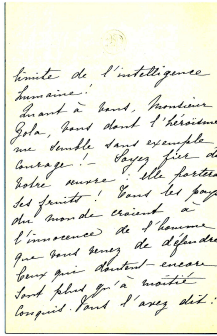 limite de l'intelligence
humaine!
Quant à vous, Monsieur
Zola, vous dont l'héroïsme
me semble sans exemple
courage! – Soyez fier de
votre œuvre : elle portera
ses fruits! Tous les pays
du monde croient à
l'innocence de l'homme
que vous venez de défendre
Ceux qui doutent encore
sont plus qu'à moitié
conquis. Vous l'avez dit :